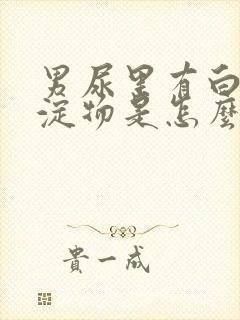 男尿里有白
淀物是怎麼
貴一成